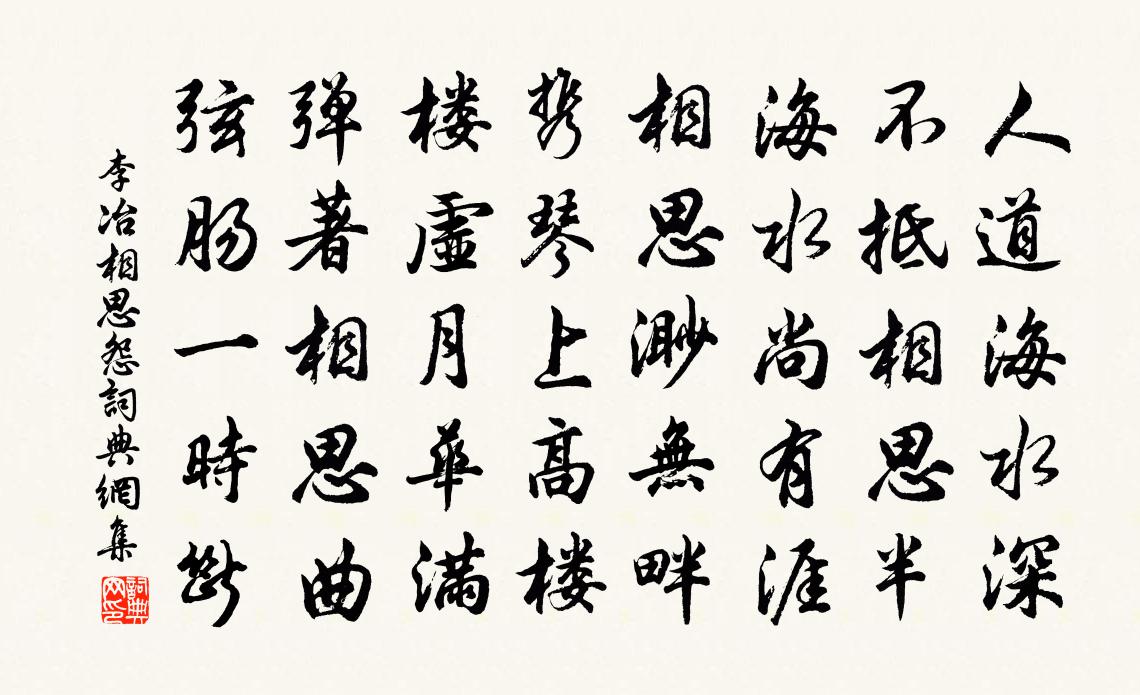 人道海水深
不抵相思半
海水尚有涯
相思渺無畔
携琴上高楼
楼虛月華满
弹著相思曲
弦肠一時斷
李冶相思怨詞典網集
詞典网印